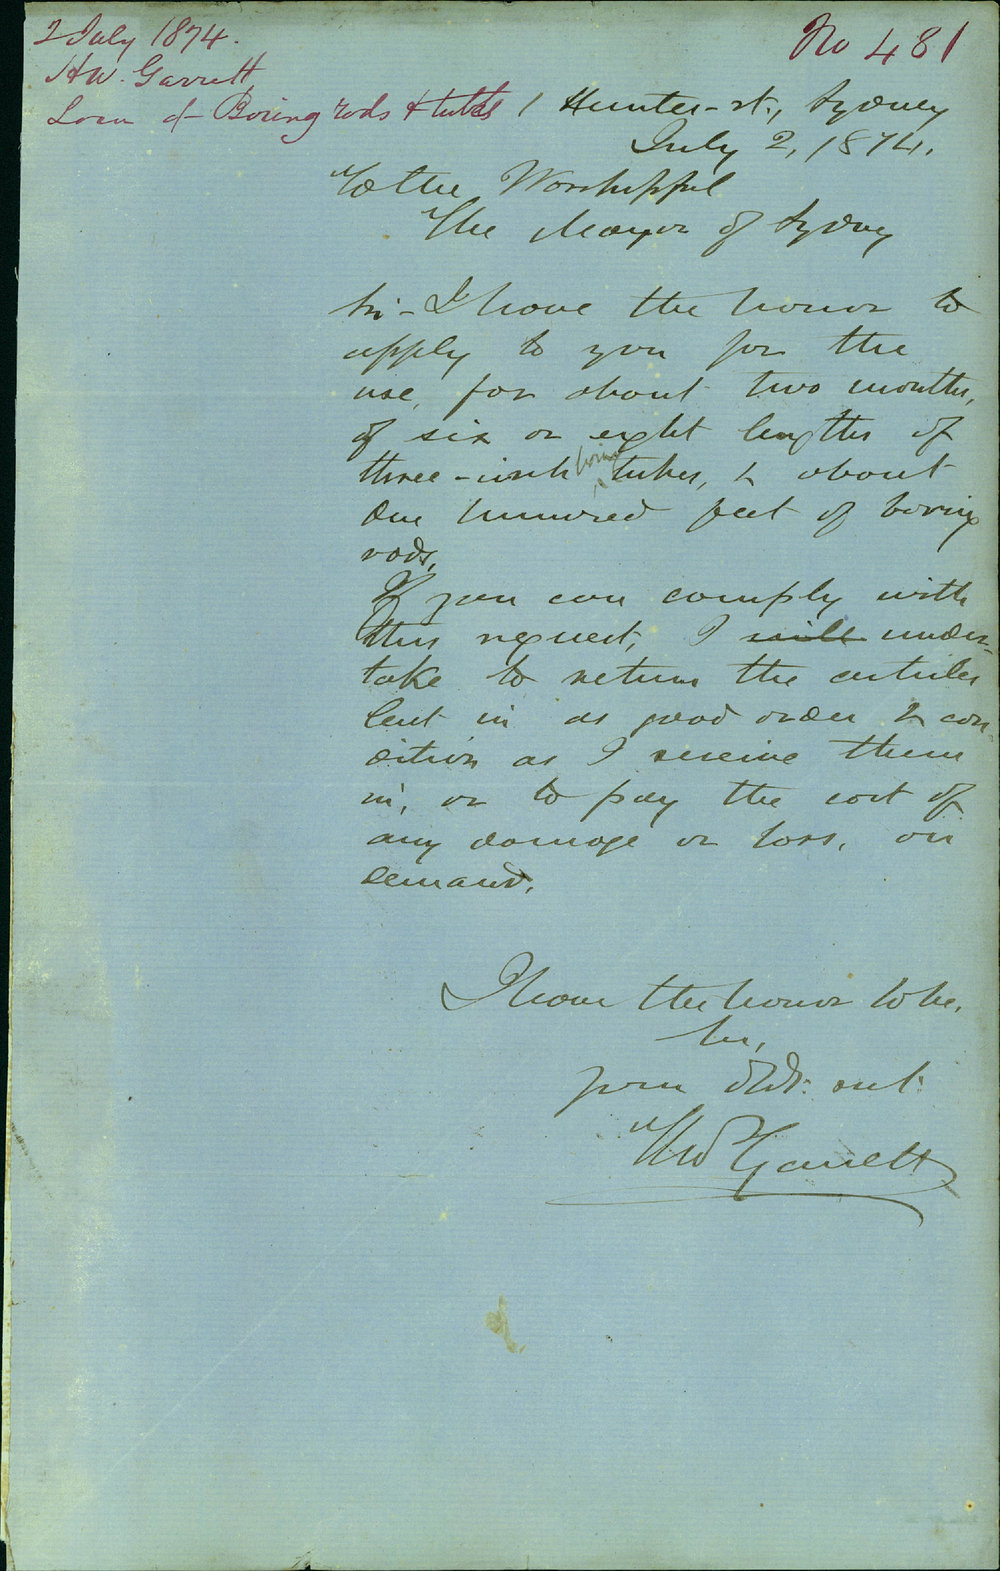 2 July 1874.
No 481
H W. Garrett
Loan of Boring rods & tubes
1 Hunter-st., Sydney
July 2, 1874.
To the Worshipful
The Mayor of Sydney
Sir - I have the honor to
apply to you for the
use, for about two months,
of six or eight lengths of
three-inch boring tubes, & about
one hundred feet of boring
rods.
If you can comply with
this request, I will under-
take to return the articles
lent in as good order & con-
dition as I receive them
in, or to pay the cost of
any damage or loss, on
demand.
I have the honor to be,
Sir,
your obdt. svt.
Garrett